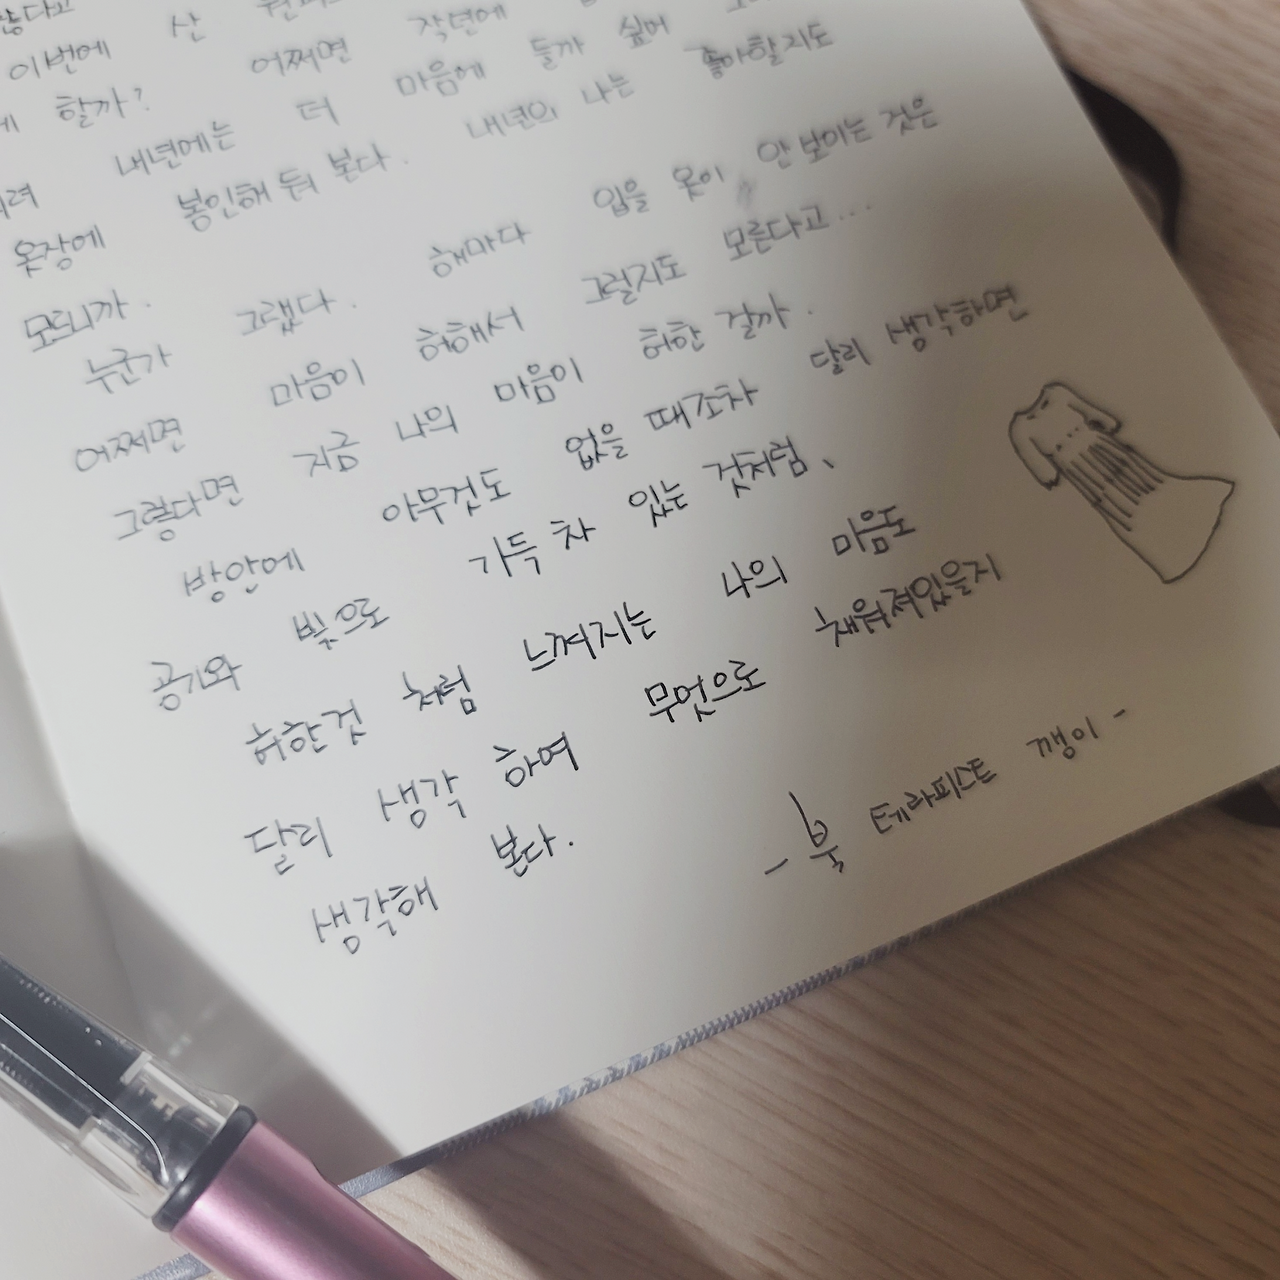 이번에 산
할까? 어쩌면 작년에
내년에는 더 마음에 들까 싶어
옷장에 봉인해 둬 본다. 내년의 나는 좋아할지도
모르니까.
누군가 그랬다. 해마다 입을 옷이 안 보이는 것은
어쩌면 마음이 허해서 그럴지도 모른다고...
그렇다면 지금 나의 마음이 허한 걸까.
방안에 아무것도 없을 때조차 달리 생각하면
공기와 빛으로 가득 차 있는 것처럼,
허한것 처럼 느껴지는 나의 마음도
달리 생각 하여 무엇으로 채워져있을지
생각해 본다.
- 북 테라피스트 깽이 -